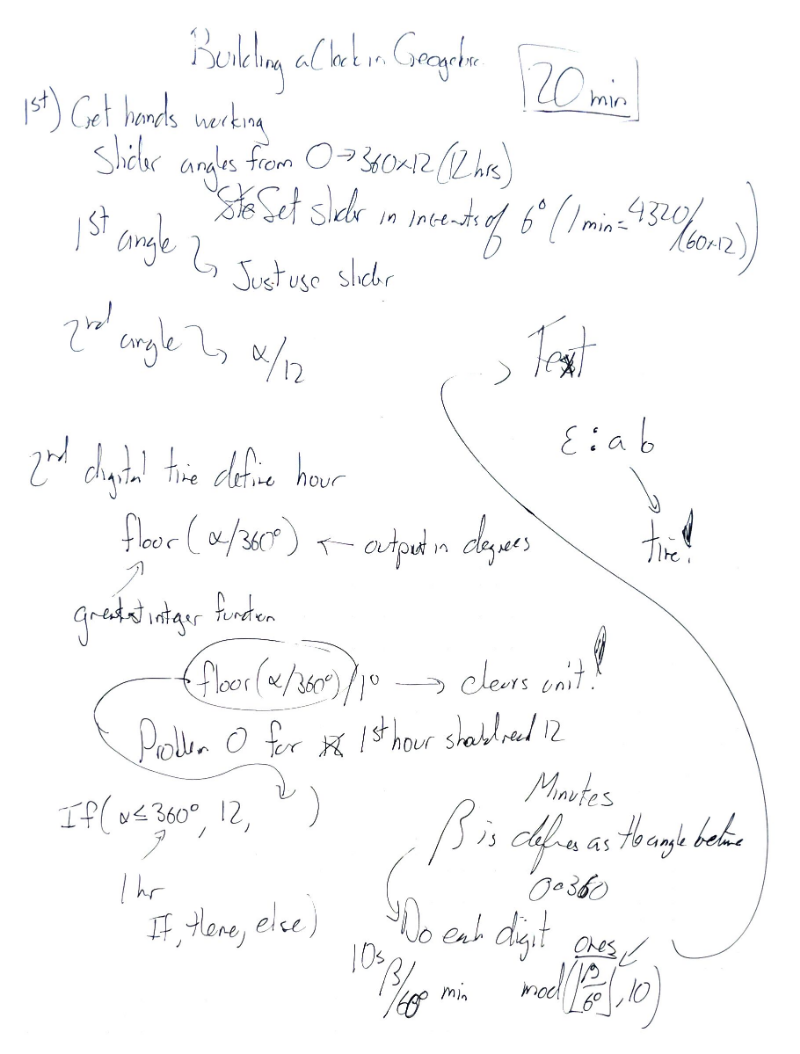 Building a Clock in Geogebra
20 min
1st) Get hands working
Slider angles from 0→360×12 (12 hrs)
Set slider in increments of 6° (1 min = 4320/(60×12))
1st angle ↳ Just use slider
2nd angle ↳ α/12
Text
ε:ab
time!
2nd digital time define hour
floor(α/360°) ← output in degrees
greatest integer function
floor(α/360°)/1° → clears unit!
Problem 0 for 1st hour should read 12
If(α≤360°, 12, )
1 hr
If, then, else)
Minutes
β is defines as the angle between
0 360
Do each digit
10s β/60° min
ones mod(⌊β/6°⌋,10)